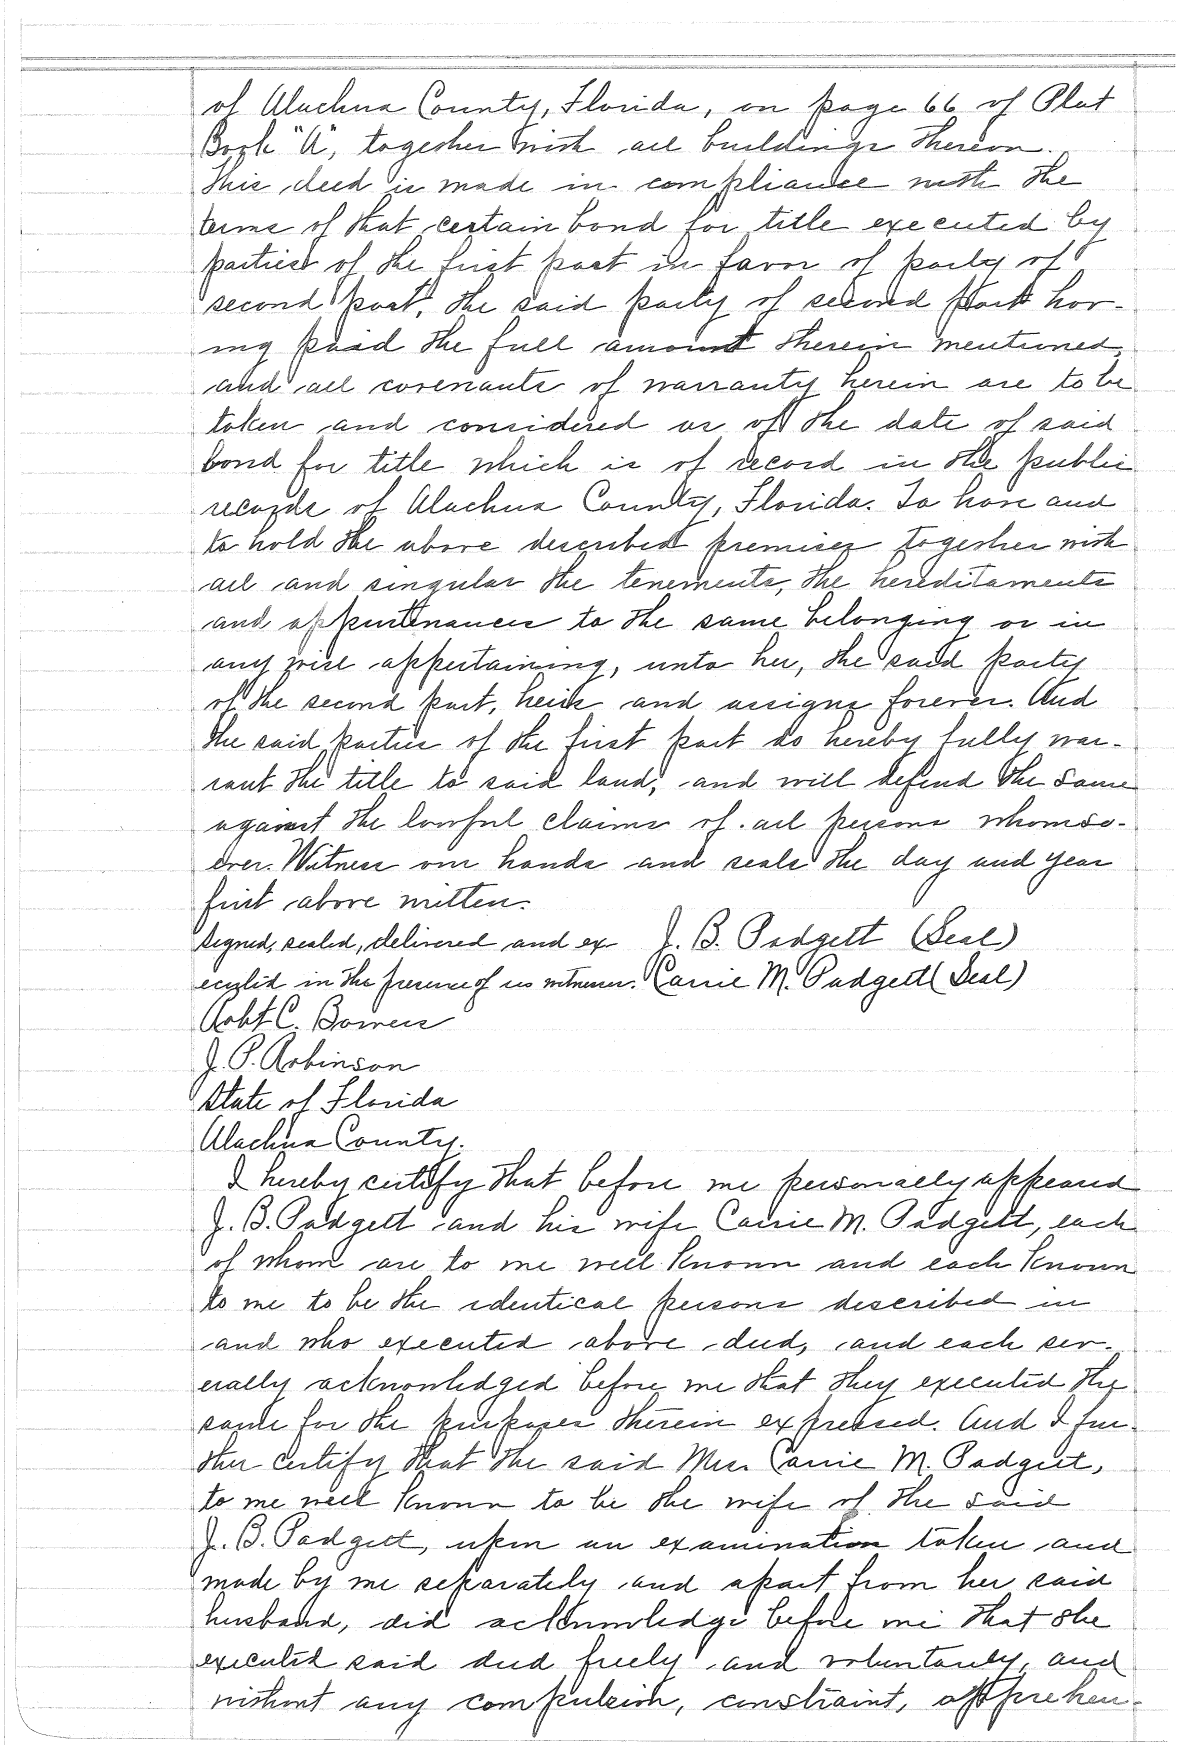 of Alachua County, Florida, on page 66 of Plat
Book "A", together with all buildings thereon.
This deed is made in compliance with the
terms of that certain bond for title executed by
parties of the first part in favor of party of
second part, the said party of second part hav-
ing paid the full amount therein mentioned,
and all covenants of warranty herein are to be
taken and considered as of the date of said
bond for title which is of record in the public
records of Alachua County, Florida. To have and
to hold the above described premises together with
all and singular the tenements, the hereditaments
and appurtenances to the same belonging or in
any wise appertaining, unto her, the said party
of the second part, heirs and assigns forever. And
the said parties of the first part do hereby fully war-
rant the title to said land, and will defend the same
against the lawful claims of all persons whomso-
ever. Witness our hands and seals the day and year
first above written.
Signed, sealed, delivered and ex J. B. Padgett (Seal)
ecuted in the presence of us witnesses. Carrie M. Padgett (Seal)
Robt C. Bowers
J. P. Robinson
State of Florida
Alachua County.
I hereby certify that before me personally appeared
J. B. Padgett and his wife Carrie M. Padgett, each
of whom are to me well known and each known
to me to be the identical persons described in
and who executed above deed, and each sev-
erally acknowledged before me that they executed the
same for the purposes therein expressed. And I fur-
ther certify that the said Mrs. Carrie M. Padgett,
to me well known to be the wife of the said
J. B. Padgett, upon an examination taken and
made by me separately and apart from her said
husband, did acknowledge before me that she
executed said deed freely and voluntarily, and
without any compulsion, constraint, apprehen-